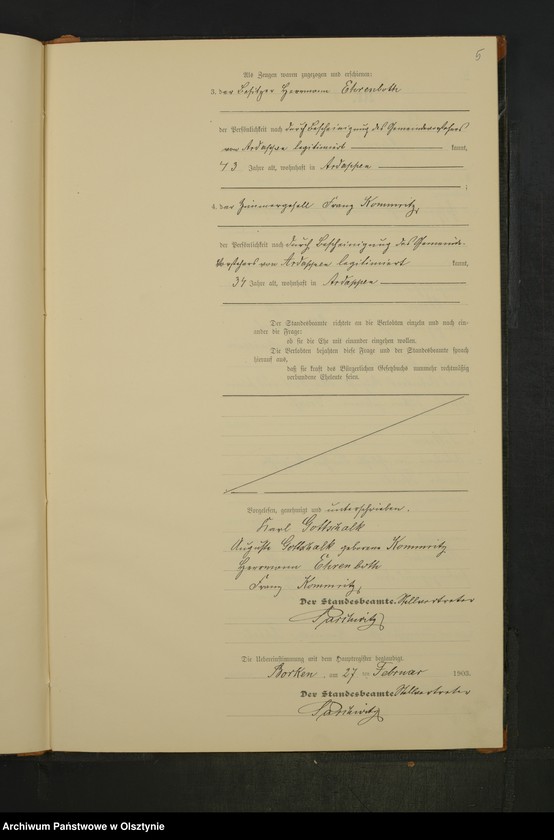 5
Als Zeugen waren zugezogen und erschienen:
3. der Besitzer Herrmann Ehrenboth
der Persönlichkeit nach durch Bescheinigung des Gemeindevorstehers
von Ardappen legitimiert kannt,
43 Jahre alt, wohnhaft in Ardappen
;
4. der Zimmergesell Franz Kommritz,
der Persönlichkeit nach durch Bescheinigung des Gemeinde-
vorstehers von Ardappen legitimiert kannt,
34 Jahre alt, wohnhaft in Ardappen
Der Standesbeamte richtete an die Verlobten einzeln und nach ein-
ander die Frage:
ob sie die Ehe mit einander eingehen wollen.
Die Verlobten bejahten diese Frage und der Standesbeamte sprach
hierauf aus,
daß sie kraft des Bürgerlichen Gesetzbuchs nunmehr rechtmäßig
verbundene Eheleute seien.
Vorgelesen, genehmigt und unterschrieben.
Karl Gottschalk
Auguste Gottschalk geborene Kommritz
Herrmann Ehrenboth
Franz Kommritz,
Der Standesbeamte. Stellvertreter
Die Uebereinstimmung mit dem Hauptregister beglaubigt
Borken, am 27 ten Februar 1903.
Der Standesbeamte. Stellvertreter
Archiwum Państwowe w Olsztynie